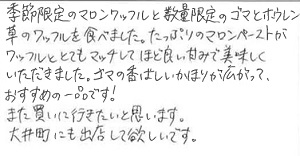 季節限定のマロンワッフルと数量限定のゴマとホウレン
草のワッフルを食べました。たっぷりのマロンペーストが
ワッフルととてもマッチしてほど良い甘みで美味しく
いただきました。ゴマの香ばしいかほりが広がって、
おすすめの一品です!
また買いに行きたいと思います。
大井町にも出店して欲しいです。